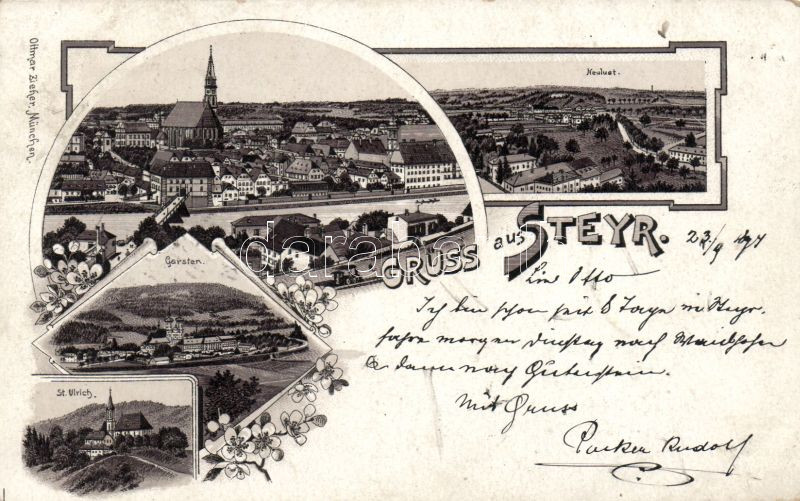 Ottmar Zieher, München.
Neulust.
GRUSS aus STEYR.
Garsten.
St. Ulrich.
darabanth
23/9 97
Otto
Ich bin schon seit 8 Tage in Steyr.
fahre morgen nach Waidhofen
dann nach Gutenstein.
Mit Gruss
Rudolf